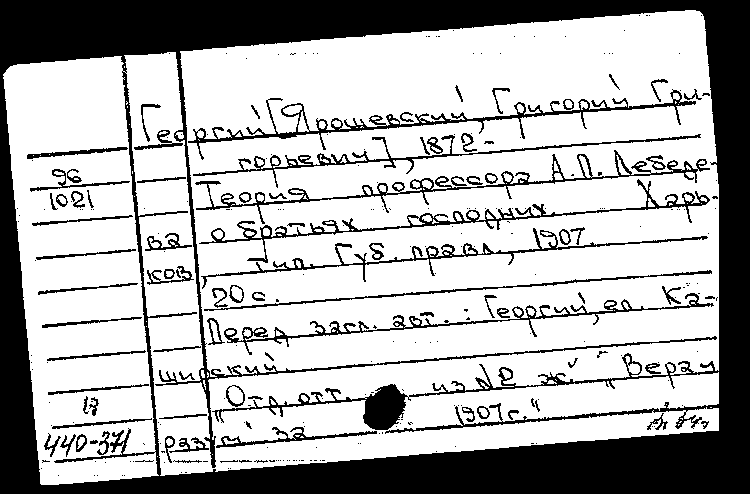 Георгий [Ярошевский, Григорий Гри-
горьевич], 1872-
96
1021
Теория профессора А.П. Лебеде-
ва о братьях господних. Харь-
ков, тип. Губ. правл., 1907.
20 с.
Перед загл. авт.: Георгий, еп. Ка-
ширский.
"Отд. отт. из № ж. "Вера и
17
440-371
разум" за 1907 г."